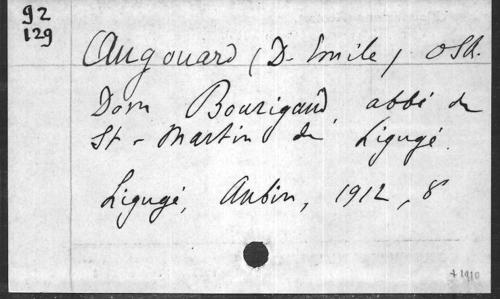 92
129
Angouard (D. Emile) OSB.
Dom Bourigaud, abbé de
St-Martin de Ligugé.
Ligugé, Aubin, 1912, 8°
+ 1910